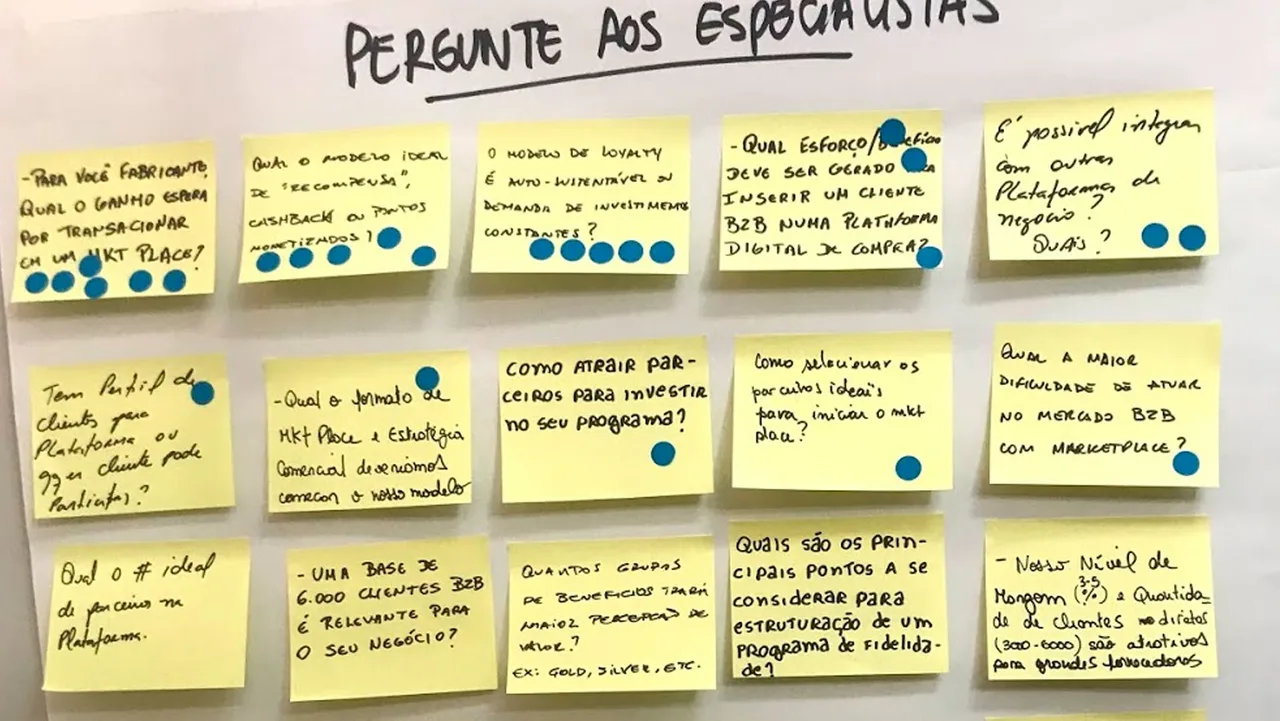 PERGUNTE AOS ESPECIALISTAS
-PARA VOCÊ FABRICANTE,
QUAL O GANHO ESPERA
POR TRANSACIONAR
EM UM MKT PLACE?
QUAL O MODELO IDEAL
DE "RECOMPENSA",
CASHBACK OU PONTOS
MONETIZADOS?
O MODELO DE LOYALTY
É AUTO-SUSTENTÁVEL OU
DEMANDA DE INVESTIMENTOS
CONSTANTES?
-QUAL ESFORÇO/Benefício
DEVE SER GERADO PARA
INSERIR UM CLIENTE
B2B NUMA PLATAFORMA
DIGITAL DE COMPRA?
É possivel integrar
com outras
Plataformas de
negocio?
Quais?
Tem Perfil de
clientes para
Plataforma ou
qq er cliente pode
Participar?
-Qual o formato de
MKt Place e Estratégia
Comercial deveriamos
começar o nosso modelo
COMO ATRAIR PAR-
CEIROS PARA INVESTIR
NO SEU PROGRAMA?
Como selecionar os
parceiros ideais
para iniciar o mkt
place?
QUAL A MAIOR
DIFICULDADE DE ATUAR
NO MERCADO B2B
COM MARKETPLACE?
Qual o # ideal
de parceiros na
Plataforma.
- UMA BASE DE
6.000 CLIENTES B2B
É RELEVANTE PARA
O SEU NEGÓCIO?
QUANTOS GRUPOS
DE BENEFICIOS TRARÁ
MAIOR PERCEPÇÃO DE
VALOR?
EX: GOLD, SILVER, ETC.
QUAIS SÃO OS PRIN-
CIPAIS PONTOS A SE
CONSIDERAR PARA
ESTRUTURAÇÃO DE UM
PROGRAMA DE FIDELIDA-
DE?
- Nosso Nível de
Margem (3-5%) e Quantida
de de clientes no diretos
(300-6000) são atrativos
para grandes fornecedores